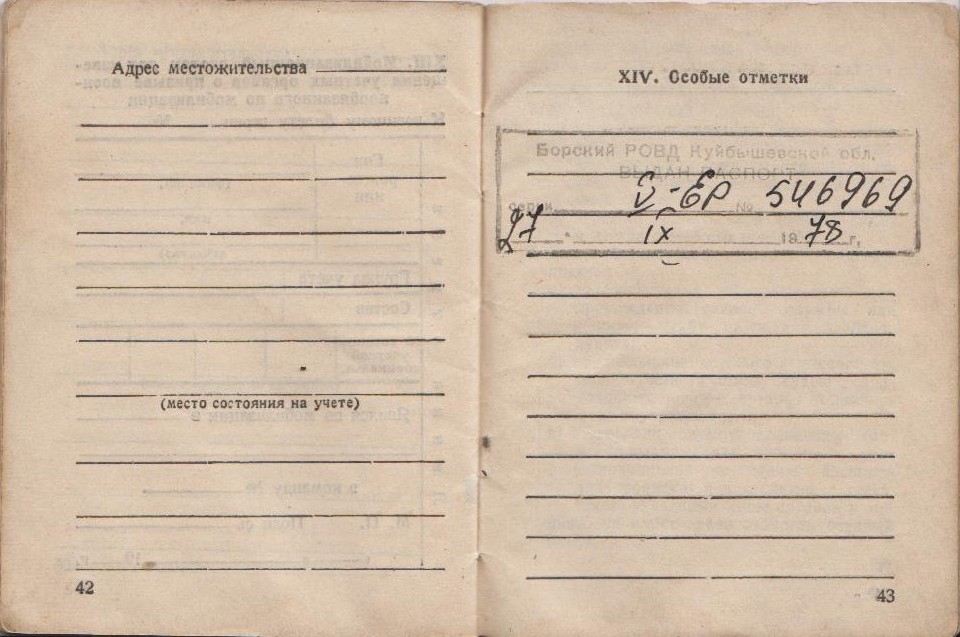 Адрес местожительства
(место состояния на учете)
42
XIV. Особые отметки
Борский РОВД Куйбышевской обл.
ВЫДАН ПАСПОРТ
серии V-ЕР № 546969
27 IX 1978 г.
43